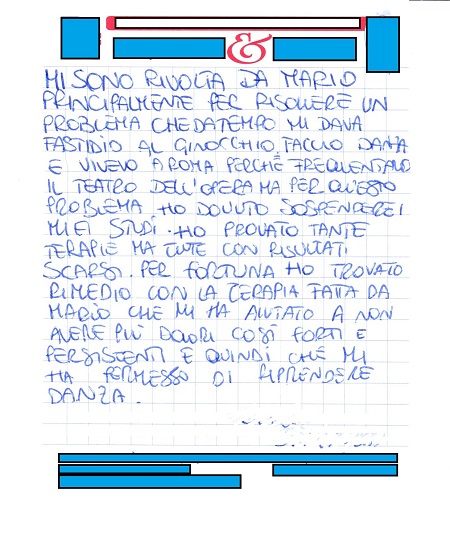 &
MI SONO RIVOLTA DA MARIO
PRINCIPALMENTE PER RISOLVERE UN
PROBLEMA CHE DA TEMPO MI DAVA
FASTIDIO AL GINOCCHIO, FACCIO DANZA
E VIVEVO A ROMA PERCHÈ FREQUENTAVO
IL TEATRO DELL'OPERA MA PER QUESTO
PROBLEMA HO DOVUTO SOSPENDERE I
MIEI STUDI. HO PROVATO TANTE
TERAPIE MA TUTTE CON RISULTATI
SCARSI. PER FORTUNA HO TROVATO
RIMEDIO CON LA TERAPIA FATTA DA
MARIO CHE MI HA AIUTATO A NON
AVERE PIÙ DOLORI COSÌ FORTI E
PERSISTENTI E QUINDI CHE MI
HA PERMESSO DI RIPRENDERE
DANZA.